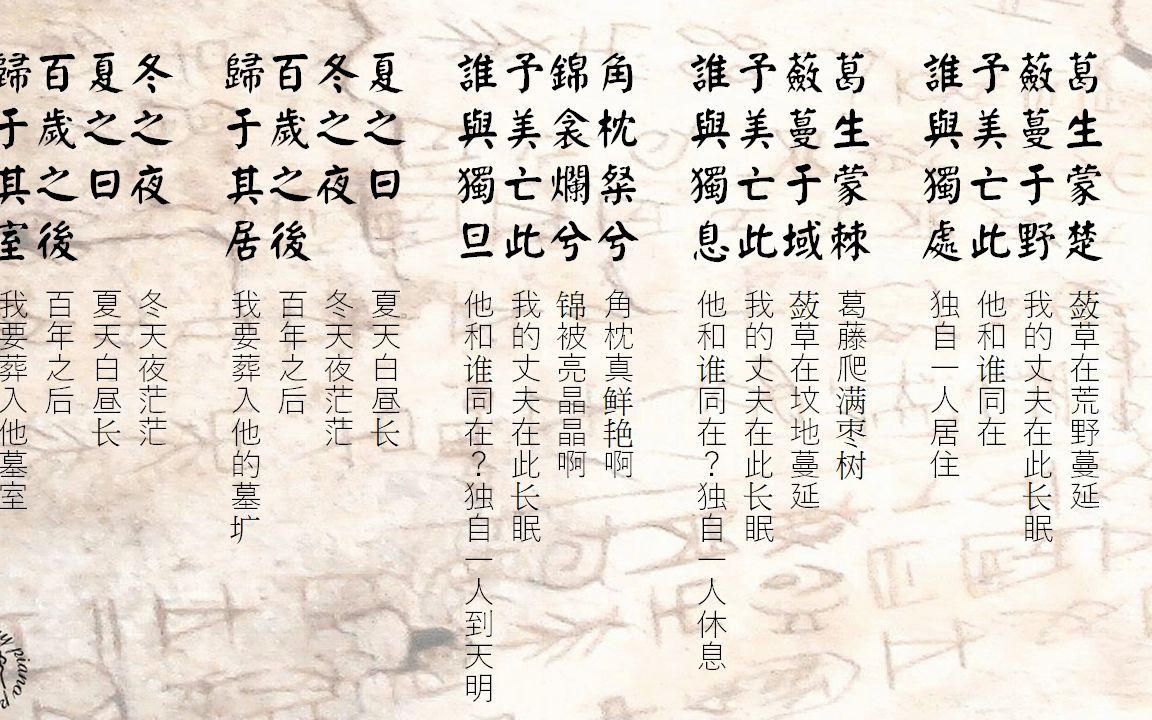 葛生蒙楚
蘞蔓于野
予美亡此
誰與獨處
蔹草在荒野蔓延
我的丈夫在此长眠
他和谁同在
独自一人居住
葛生蒙棘
蘞蔓于域
予美亡此
誰與獨息
葛藤爬满枣树
蔹草在坟地蔓延
我的丈夫在此长眠
他和谁同在？独自一人休息
角枕粲兮
錦衾爛兮
予美亡此
誰與獨旦
角枕真鲜艳啊
锦被亮晶晶啊
我的丈夫在此长眠
他和谁同在？独自一人到天明
夏之日
冬之夜
百歲之後
歸于其居
夏天白昼长
冬天夜茫茫
百年之后
我要葬入他的墓圹
冬之夜
夏之日
百歲之後
歸于其室
冬天夜茫茫
夏天白昼长
百年之后
我要葬入他墓室
piano